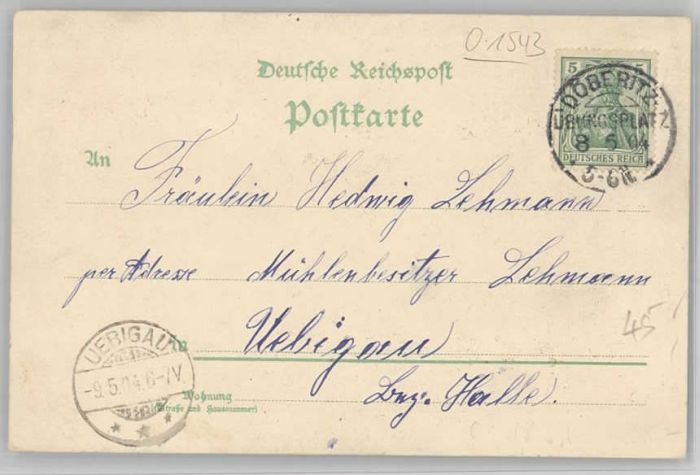 O-1543
Deutsche Reichspost
Postkarte
5 5
DÖBERITZ
ÜBUNGSPLATZ
8 5 04
5-6N.
DEUTSCHES REICH
An
Fräulein Hedwig Lehmann
per Adresse Mühlenbesitzer Lehmann
in Uebigau
Bez. Halle.
45
UEBIGAU
-9.5.04.6-7V
Wohnung
(Straße und Hausnummer)